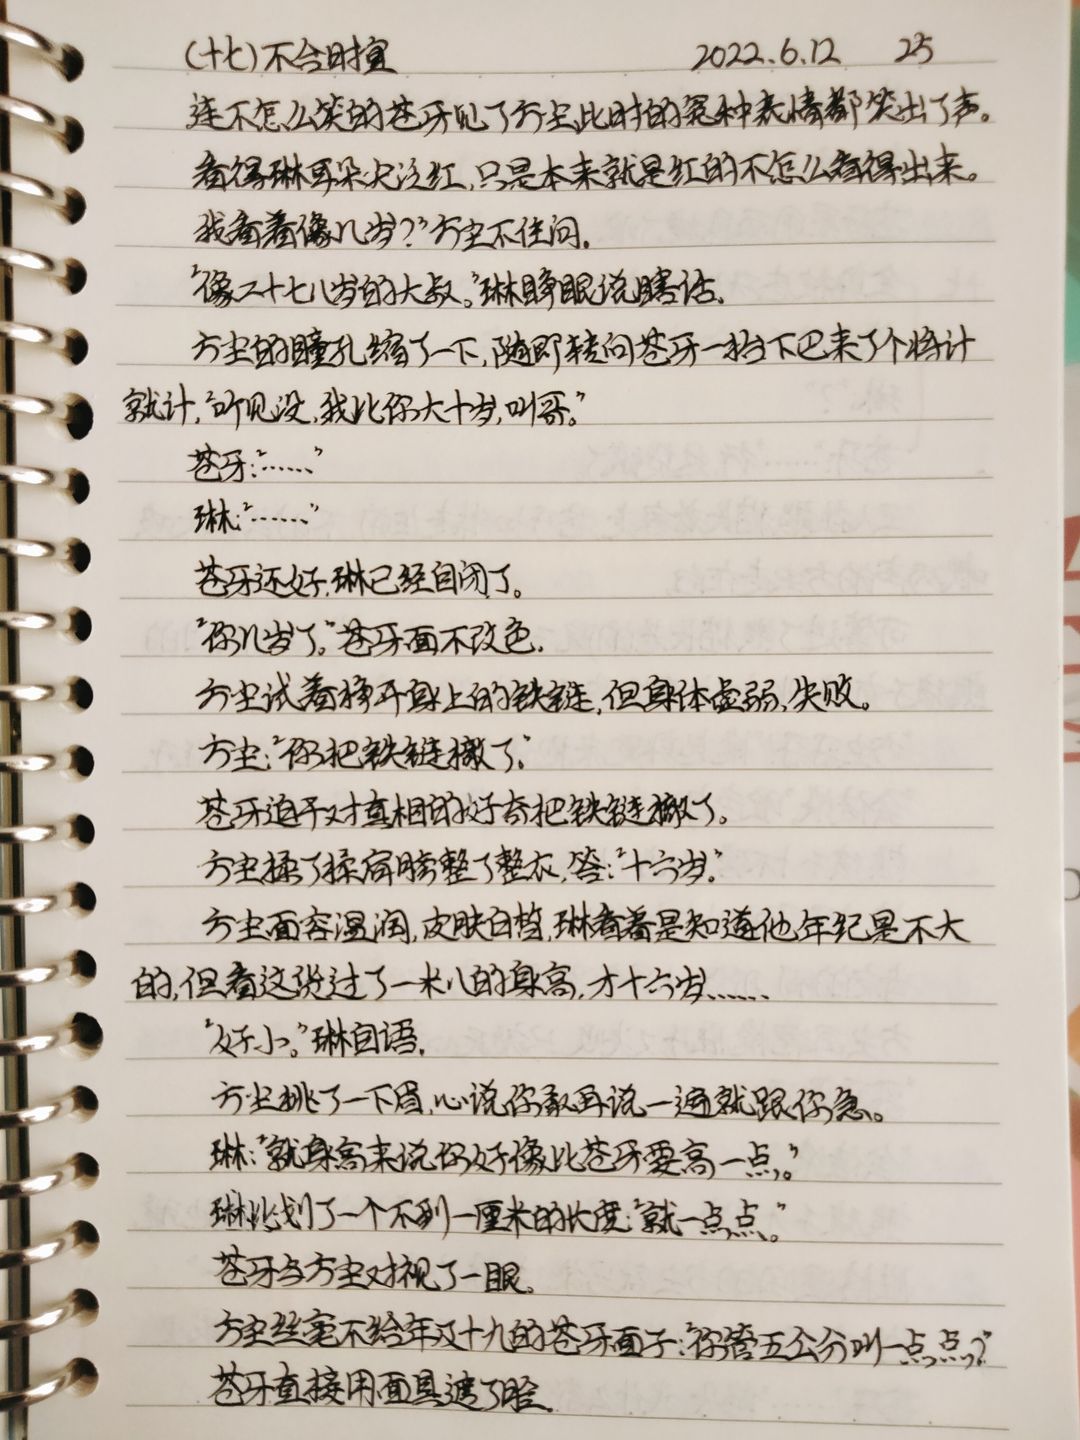 (十七)不合时宜 2022.6.12 25
连不怎么笑的苍牙见了方尘此时的冤种表情都笑出了声。
看得琳耳朵尖泛红,只是本来就是红的不怎么看得出来。
我看着像几岁?”方尘不住问。
“像二十七八岁的大叔。”琳睁眼说瞎话。
方尘的瞳孔缩了一下,随即转向苍牙一抬下巴来了个将计
就计,“听见没,我比你大十岁,叫哥。”
苍牙:“……”
琳:“……”
苍牙还好,琳已经自闭了。
“你几岁了。”苍牙面不改色.
方尘试着挣开身上的铁链,但身体虚弱,失败。
方尘:“你把铁链撤了。”
苍牙迫于对真相的好奇把铁链撤了。
方尘揉了揉肩膀整了整衣,答:“十六岁。”
方尘面容温润,皮肤白皙,琳看着是知道他年纪是不大
的,但看这货过了一米八的身高,才十六岁……
“好小。”琳自语.
方尘挑了一下眉,心说你敢再说一遍就跟你急。
琳:“就身高来说你好像比苍牙要高一点。”
琳比划了一个不到一厘米的长度:“就一点点。”
苍牙与方尘对视了一眼。
方尘丝毫不给年及十九的苍牙面子:“你管五公分叫一点点?”
苍牙直接用面具遮了脸.